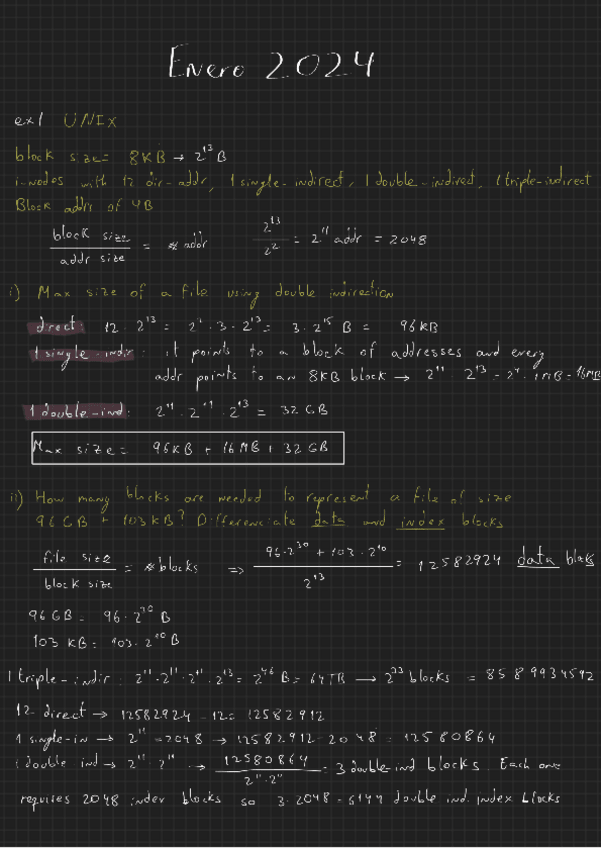 Enero 2024
ex1 UNIX
block size = 8KB → 2^13 B
i-nodes with 12 dir-addr, 1 single-indirect, 1 double-indirect, 1 triple-indirect
Block addr of 4B
block size / addr size = # addr    2^13 / 2^2 = 2^11 addr = 2048
i) Max size of a file using double indirection
direct: 12 · 2^13 = 2^2 · 3 · 2^13 = 3 · 2^15 B = 96KB
1 single-indir: it points to a block of addresses and every
addr points to an 8KB block → 2^11 · 2^13 = 2^4 · 1MB = 16MB
1 double-ind: 2^11 · 2^11 · 2^13 = 32 GB
Max size = 96KB + 16MB + 32 GB
ii) How many blocks are needed to represent a file of size
96 GB + 103 KB? Differenciate data and index blocks
file size / block size = # blocks => 96·2^30 + 103·2^10 / 2^13 = 12582924 data blocks
96 GB = 96 · 2^30 B
103 KB = 103 · 2^10 B
1 triple-indir: 2^11 · 2^11 · 2^11 · 2^13 = 2^46 B = 64TB → 2^33 blocks = 8589934592
12 direct → 12582924 - 12 = 12582912
1 single-in → 2^11 = 2048 → 12582912 - 2048 = 12580864
1 double ind → 2^11 · 2^11 → 12580864 / 2^11 · 2^11 = 3 double-ind blocks. Each one
requires 2048 index blocks so 3 · 2048 = 6144 double ind. index blocks